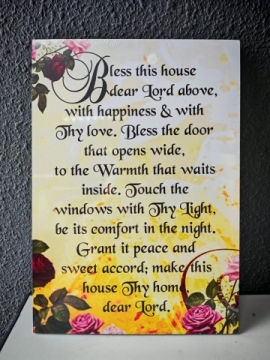 Bless this house
dear Lord above,
with happiness & with
Thy love. Bless the door
that opens wide,
to the Warmth that waits
inside. Touch the
windows with Thy Light,
be its comfort in the night.
Grant it peace and
sweet accord; make this
house Thy home
dear Lord.